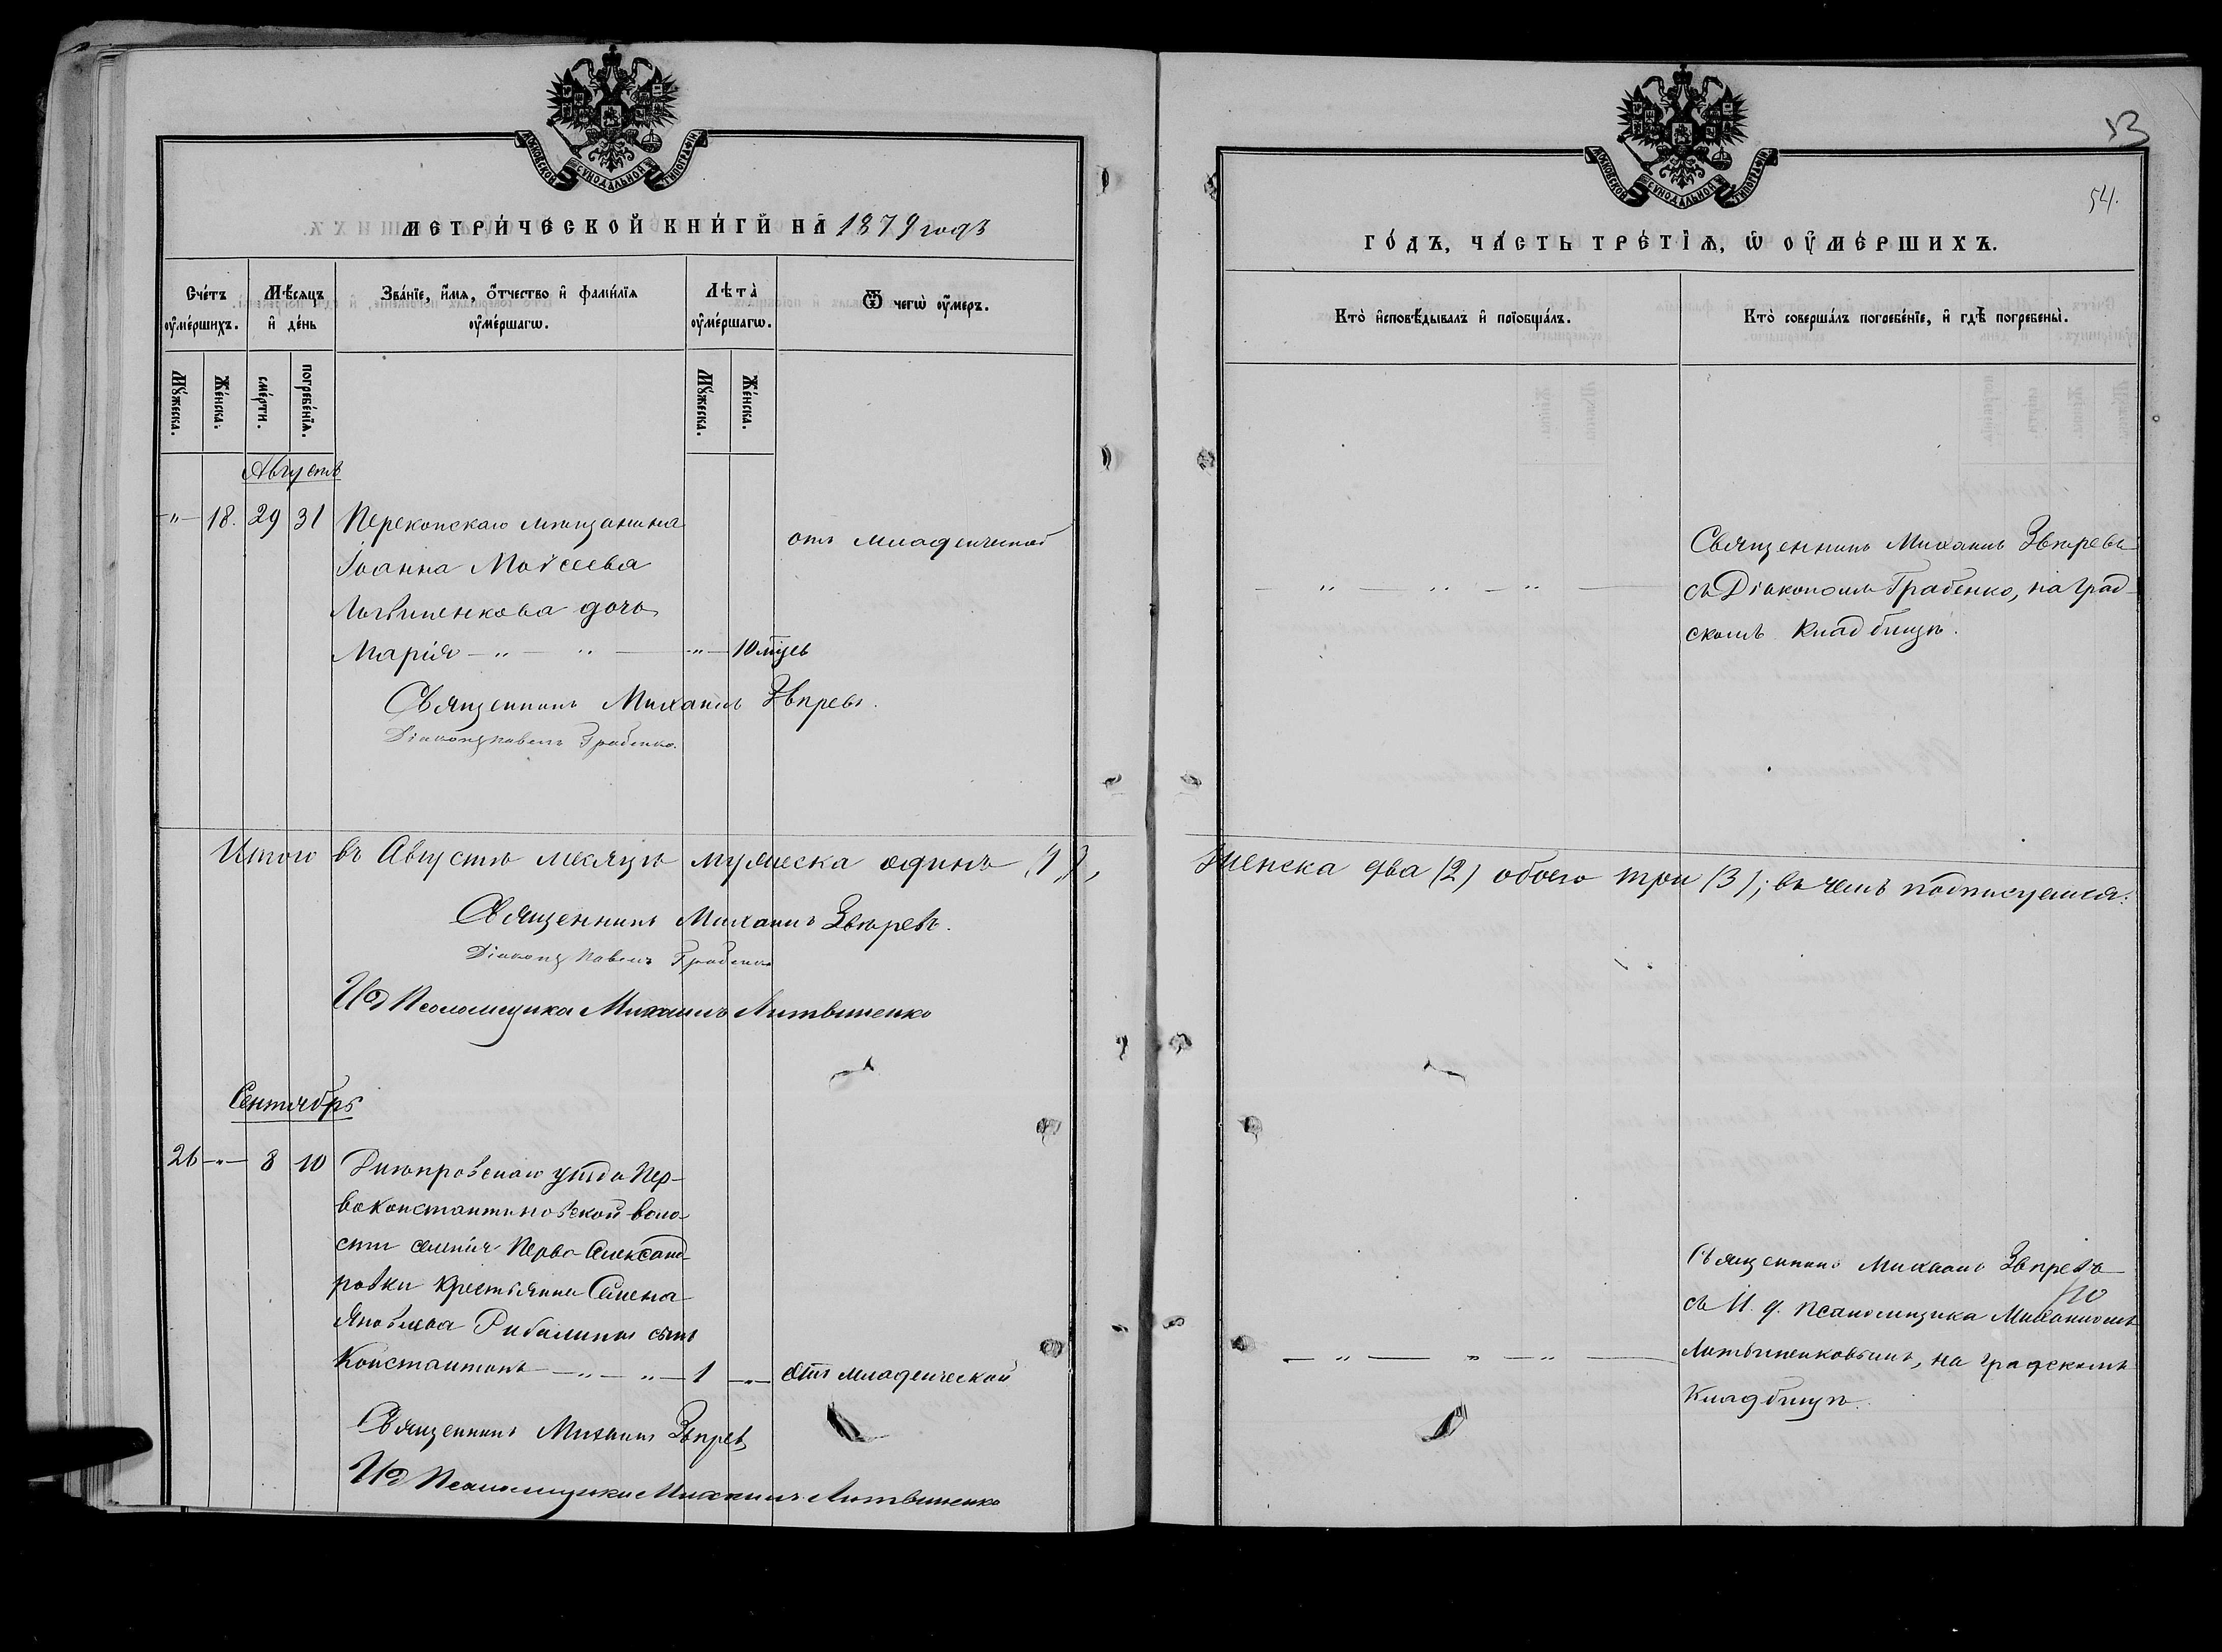 МОСКОВСКОЙ СУНОДАЛЬНОЙ ТИПОГРАФІИ
МЕТРИ́ЧЕСКОЙ КНИ́ГИ НА 1879 годъ
Сче́тъ ᲂу҆ме́ршихъ.
Мѣ́сяцъ и҆ де́нь
Зва́нїе, и҆́мѧ, ѻ҆́тчество и҆ фамі́лїѧ ᲂу҆ме́ршагѡ.
Лѣ́та ᲂу҆ме́ршагѡ.
Ѿ чегѡ̀ ᲂу҆́меръ.
Мꙋ́жеска.
Же́нска.
сме́рти.
погребе́нїѧ.
Мꙋ́жеска.
Же́нска.
Августъ
-"- 18. 29 31 Перекопскаго мѣщанина
Іоанна Моѵсеева
Литвиненкова дочь
Марія - " - " - " - 10 мцев
отъ младенческой
Священникъ Михаилъ Звѣревъ.
Діаконъ Павелъ Грабенко.
Итого въ Августѣ месяцѣ мужеска одинъ (1),
Священникъ Михаилъ Звѣревъ.
Діаконъ Павелъ Грабенко
И д Псаломщика Михаилъ Литвиненко
Сентябрь
26 -"- 8 10 Днѣпровскаго уѣзда Пер-
воконстантиновской воло-
сти селенія Перво Александ-
ровки крестьянина Семена
Яковлева Рибалкина сынъ
Константинъ - " - " - 1 -"- Отъ младенческой
Священникъ Михаилъ Звѣревъ
И д Псаломщика Михаилъ Литвиненко
53
54.
МОСКОВСКОЙ СУНОДАЛЬНОЙ ТИПОГРАФІИ
ГО́ДЪ, ЧА́СТЬ ТРЕ́ТЇѦ, Ѡ҆ ОУ҆МЕ́РШИХЪ.
Кто̀ и҆сповѣ́дывалъ и҆ прїобща́лъ.
Кто̀ соверша́лъ погребе́нїе, и҆ гдѣ̀ погребены̀.
Священникъ Михаилъ Звѣревъ
- " - " - " - съ Діакономъ Грабенко, на град-
скомъ кладбищѣ.
женска два (2) обоего три (3); въ чемъ подписуемся:
Священникъ Михаилъ Звѣревъ
съ И. д. псаломщика Михаиломъ
- " - " - " - Литвиненковымъ, на градскомъ
кладбищѣ.